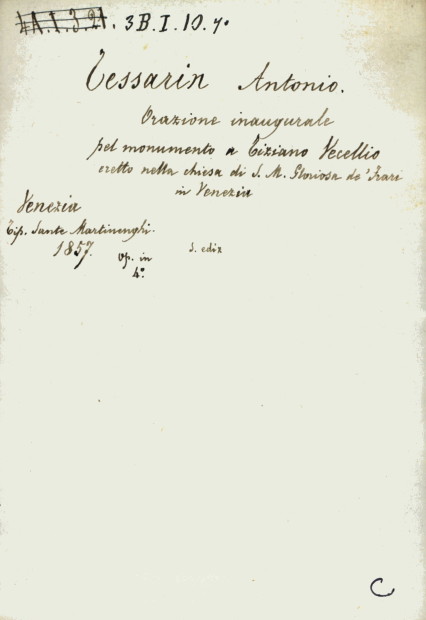 4A.1.3.21. 3B.I.10.7.
Tessarin Antonio.
Orazione inaugurale
pel monumento a Tiziano Vecellio
eretto nella chiesa di S. M. Gloriosa de' Frari
in Venezia
Venezia
Tip. Sante Martinenghi.
1857. Op. in 4.° 1. ediz
C